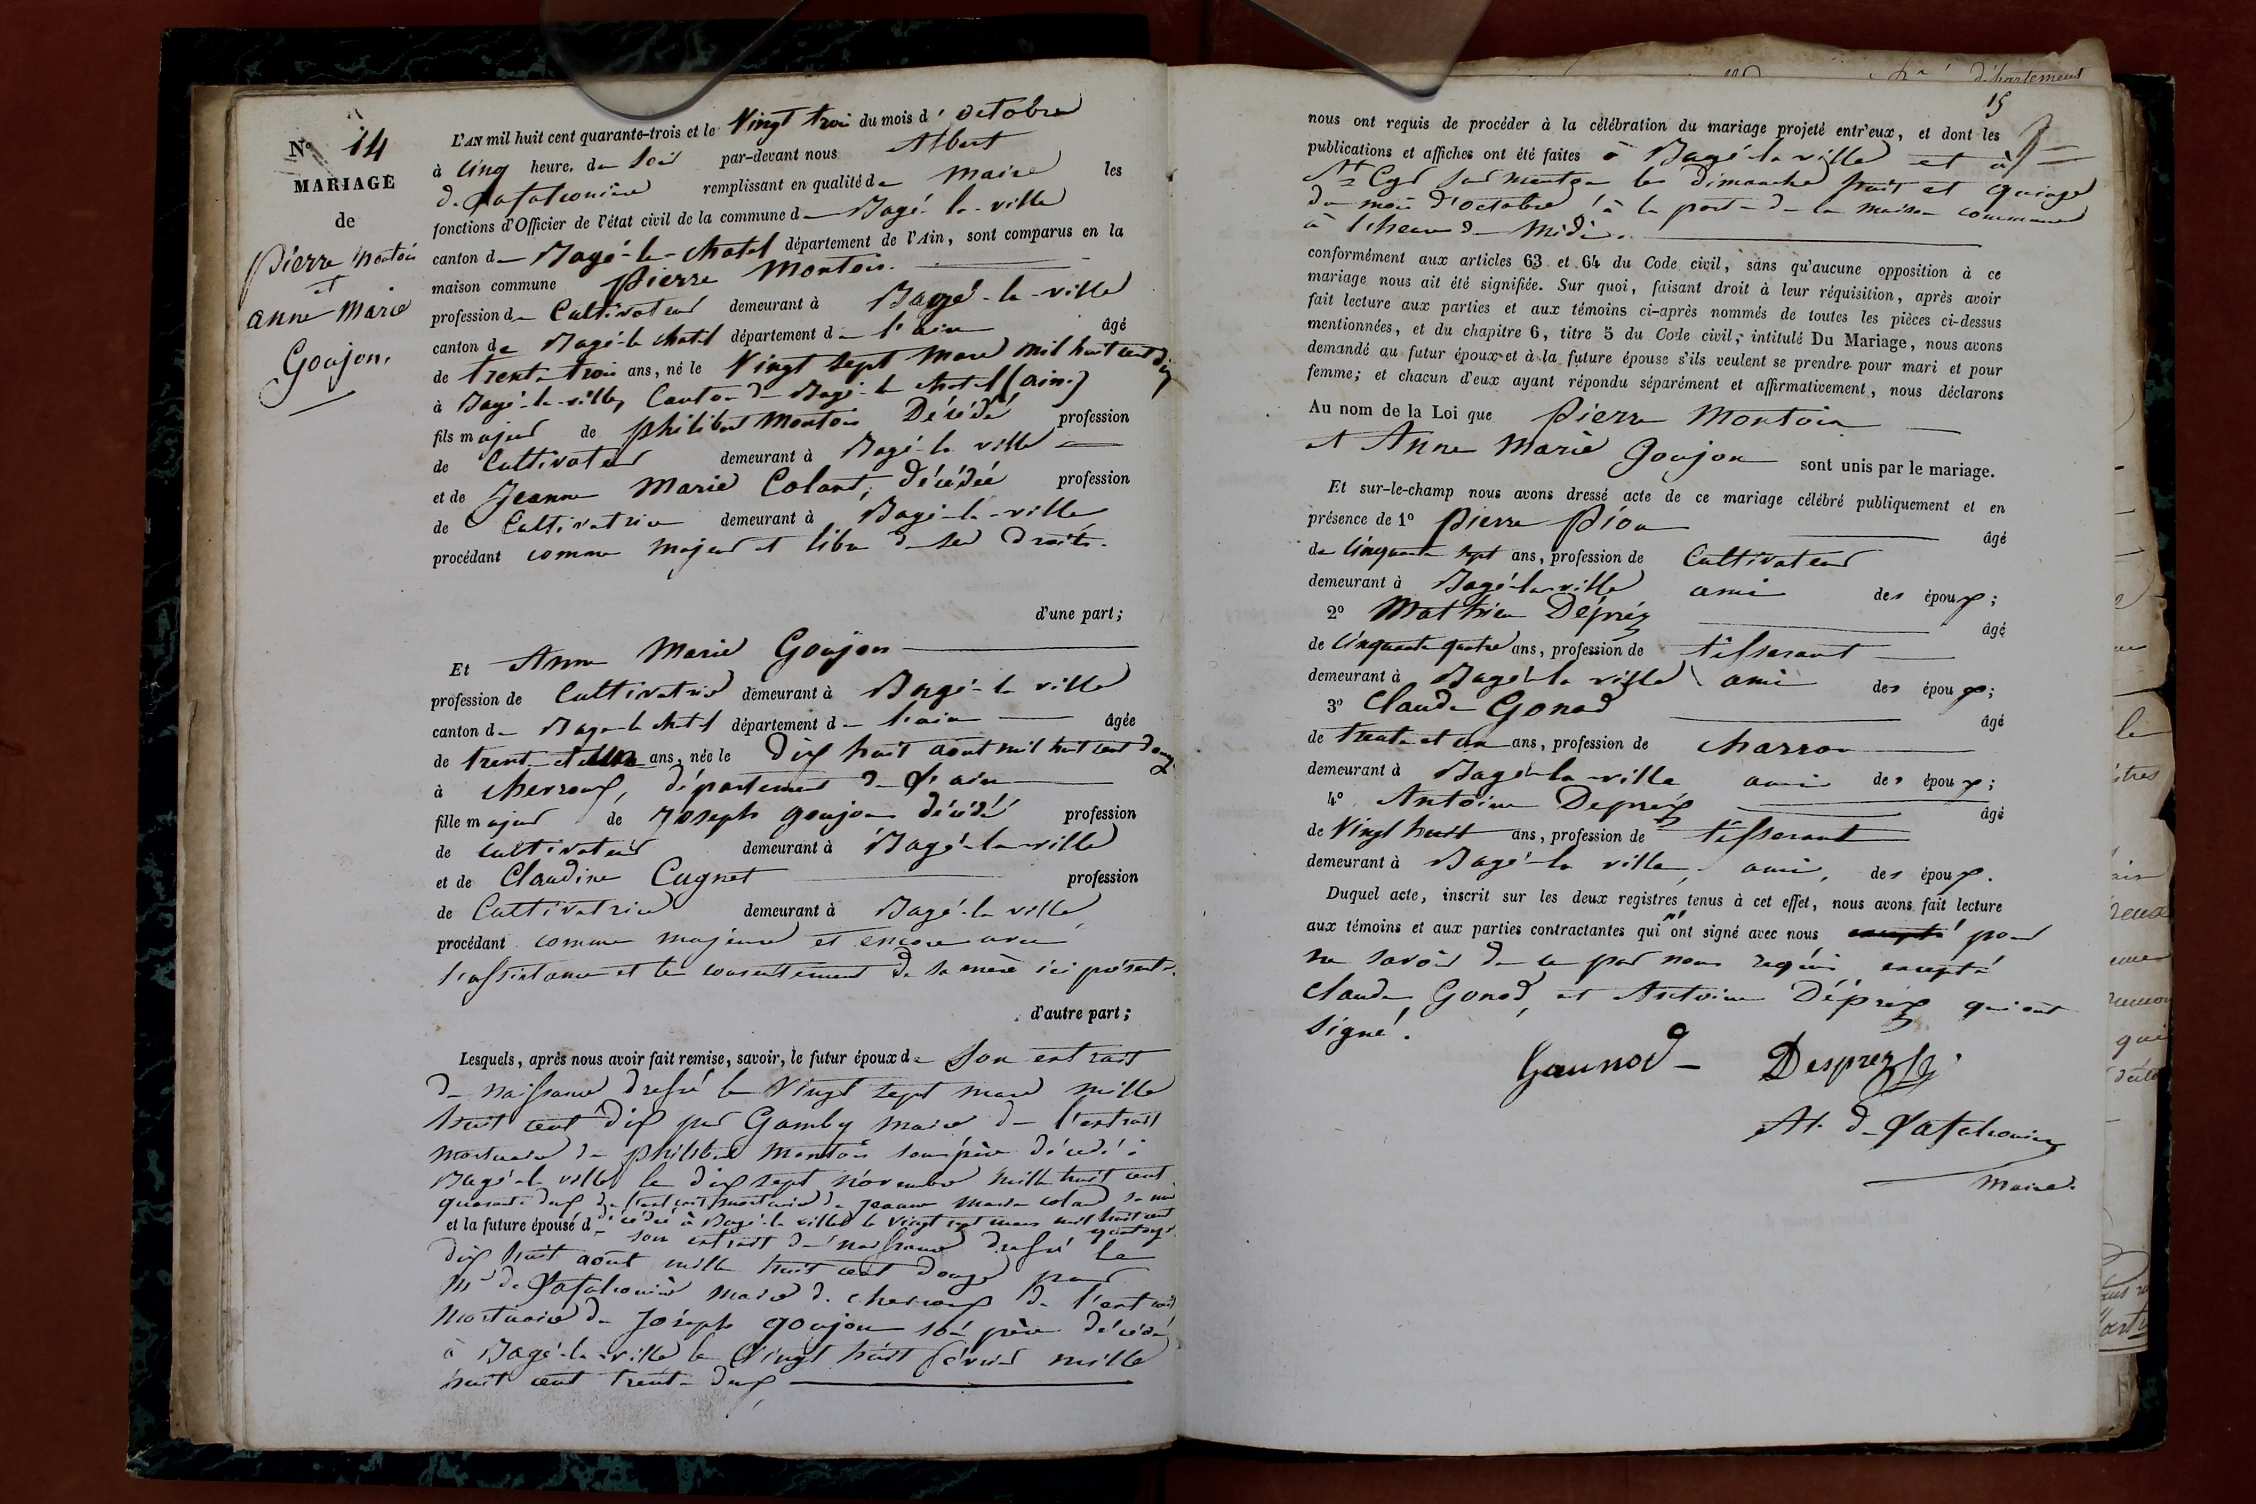 N° 14
MARIAGE
de
Pierre Montoin
et
anne Marie
Goujon.
L'AN mil huit cent quarante-trois et le Vingt trois du mois d'octobre
à Cinq heure. du Soir par-devant nous Albert
remplissant en qualité de Maire les
fonctions d'Officier de l'état civil de la commune de Bagé-la-ville
canton de Bagé-le-Chatel département de l'Ain, sont comparus en la
maison commune Pierre Montoin
profession de Cultivateur demeurant à Bagé-la-ville
canton de Bagé-le chatel département de l'ain âgé
de trente trois ans, né le Vingt sept mars mil huit cent dix
à Bagé-la-ville, Canton de Bagé-le chatel (ain.)
fils majeur de philibert Montoin Décédé profession
de Cultivateur demeurant à Bagé-la ville
et de Jeanne Marie Coland, décédée profession
de Cultivatrice demeurant à Bagé-la-ville
procédant comme majeur et libre de ses droits.
d'une part;
Et Anne Marie Goujon
profession de Cultivatrice demeurant à Bagé-la ville
canton de Bagé-le chatel département de l'ain âgée
de trente et un ans, née le dix huit aout mil huit cent douze
à cherroux, département de l'ain
fille majeur de Joseph goujon décédé profession
de cultivateur demeurant à Bagé-la-ville
et de Claudine Cugnet profession
de Cultivatrice demeurant à Bagé-la ville
procédant comme majeure et encore avec
l'assistance et le consentement de sa mère ici présente.
d'autre part;
Lesquels, après nous avoir fait remise, savoir, le futur époux de Son extrait
de naissance dressé le Vingt sept mars mille
huit cent dix par Gamby maire de l'extrait
mortuaire de philibert Montoin son père décédé à
Bagé-la ville le dix sept novembre mille huit cent
quarante deux de l'extrait mortuaire de Jeanne Marie coland sa mère
décédée à Bagé-la ville le vingt sept mars mil huit cent quatorze
et la future épouse de son extrait de naissance dressé le
dix huit aout mille huit cent douze par
Mr de maire de cherroux de l'extrait
mortuaire de Joseph goujon son père décédé
à Bagé-la-ville le Vingt huit février mille
huit cent trente deux
15
nous ont requis de procéder à la célébration du mariage projeté entr'eux, et dont les
publications et affiches ont été faites à Bagé-la ville et à
St Cyr sur menthon les dimanche huit et quinze
du mois d'octobre à la porte de la maison commune
à l'heure de Midi.
conformément aux articles 63 et 64 du Code civil, sans qu'aucune opposition à ce
mariage nous ait été signifiée. Sur quoi, faisant droit à leur réquisition, après avoir
fait lecture aux parties et aux témoins ci-après nommés de toutes les pièces ci-dessus
mentionnées, et du chapitre 6, titre 5 du Code civil, intitulé Du Mariage, nous avons
demandé au futur époux et à la future épouse s'ils veulent se prendre pour mari et pour
femme; et chacun d'eux ayant répondu séparément et affirmativement, nous déclarons
Au nom de la Loi que Pierre Montoin
et Anne Marie Goujon sont unis par le mariage.
Et sur-le-champ nous avons dressé acte de ce mariage célébré publiquement et en
présence de 1° Pierre Pion âgé
de Cinquante sept ans, profession de Cultivateur
demeurant à Bagé-la-ville ami des époux;
2° Mathieu Dépréz âgé
de cinquante quatre ans, profession de tisserant
demeurant à Bagé-la ville ami des époux;
3° Claude Gonod âgé
de trente et un ans, profession de charron
demeurant à Bagé-la-ville ami des époux;
4° Antoine Depréz âgé
de Vingt huit ans, profession de tisserant
demeurant à Bagé-la ville, ami, des époux.
Duquel acte, inscrit sur les deux registres tenus à cet effet, nous avons fait lecture
aux témoins et aux parties contractantes qui n'ont signé avec nous excepté pour
ne savoir de ce par nous requis, excepté
Claude Gonod, et Antoine Déprez qui ont
signé.
Gaunod Desprez
Maire.